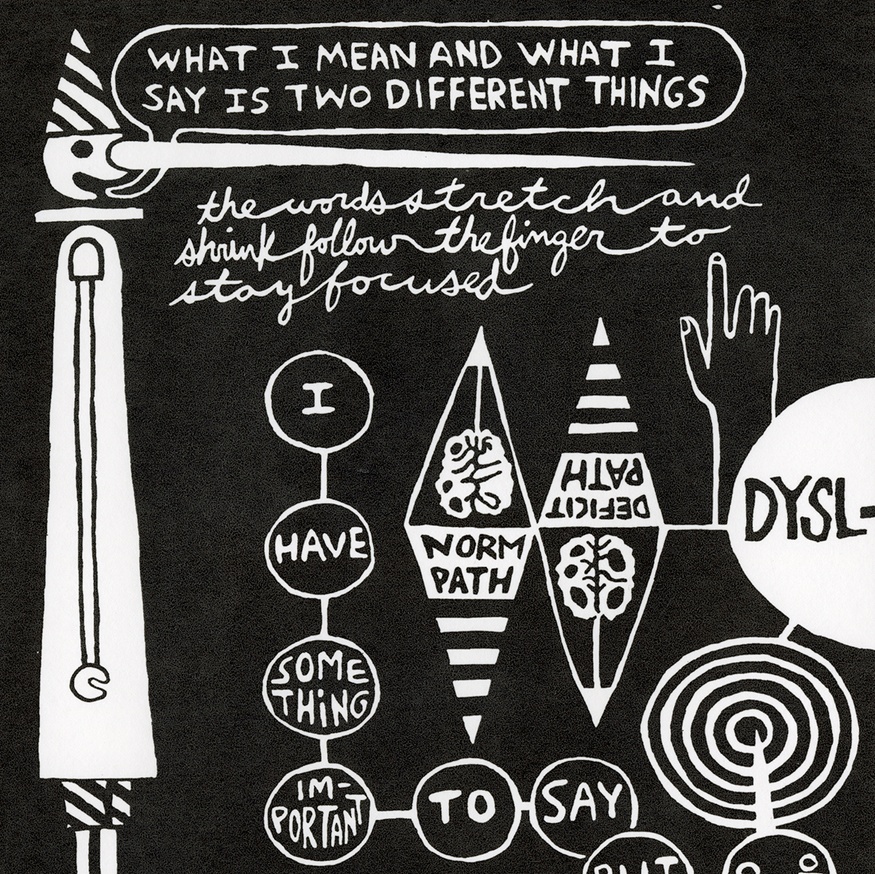 WHAT I MEAN AND WHAT I
SAY IS TWO DIFFERENT THINGS
the words stretch and
shrink follow the finger to
stay focused
I
HAVE
SOME
THiNG
IM-
PORTANT
TO
SAY
BUT
NORM
PATH
DEFICIT
PATH
DYSL-